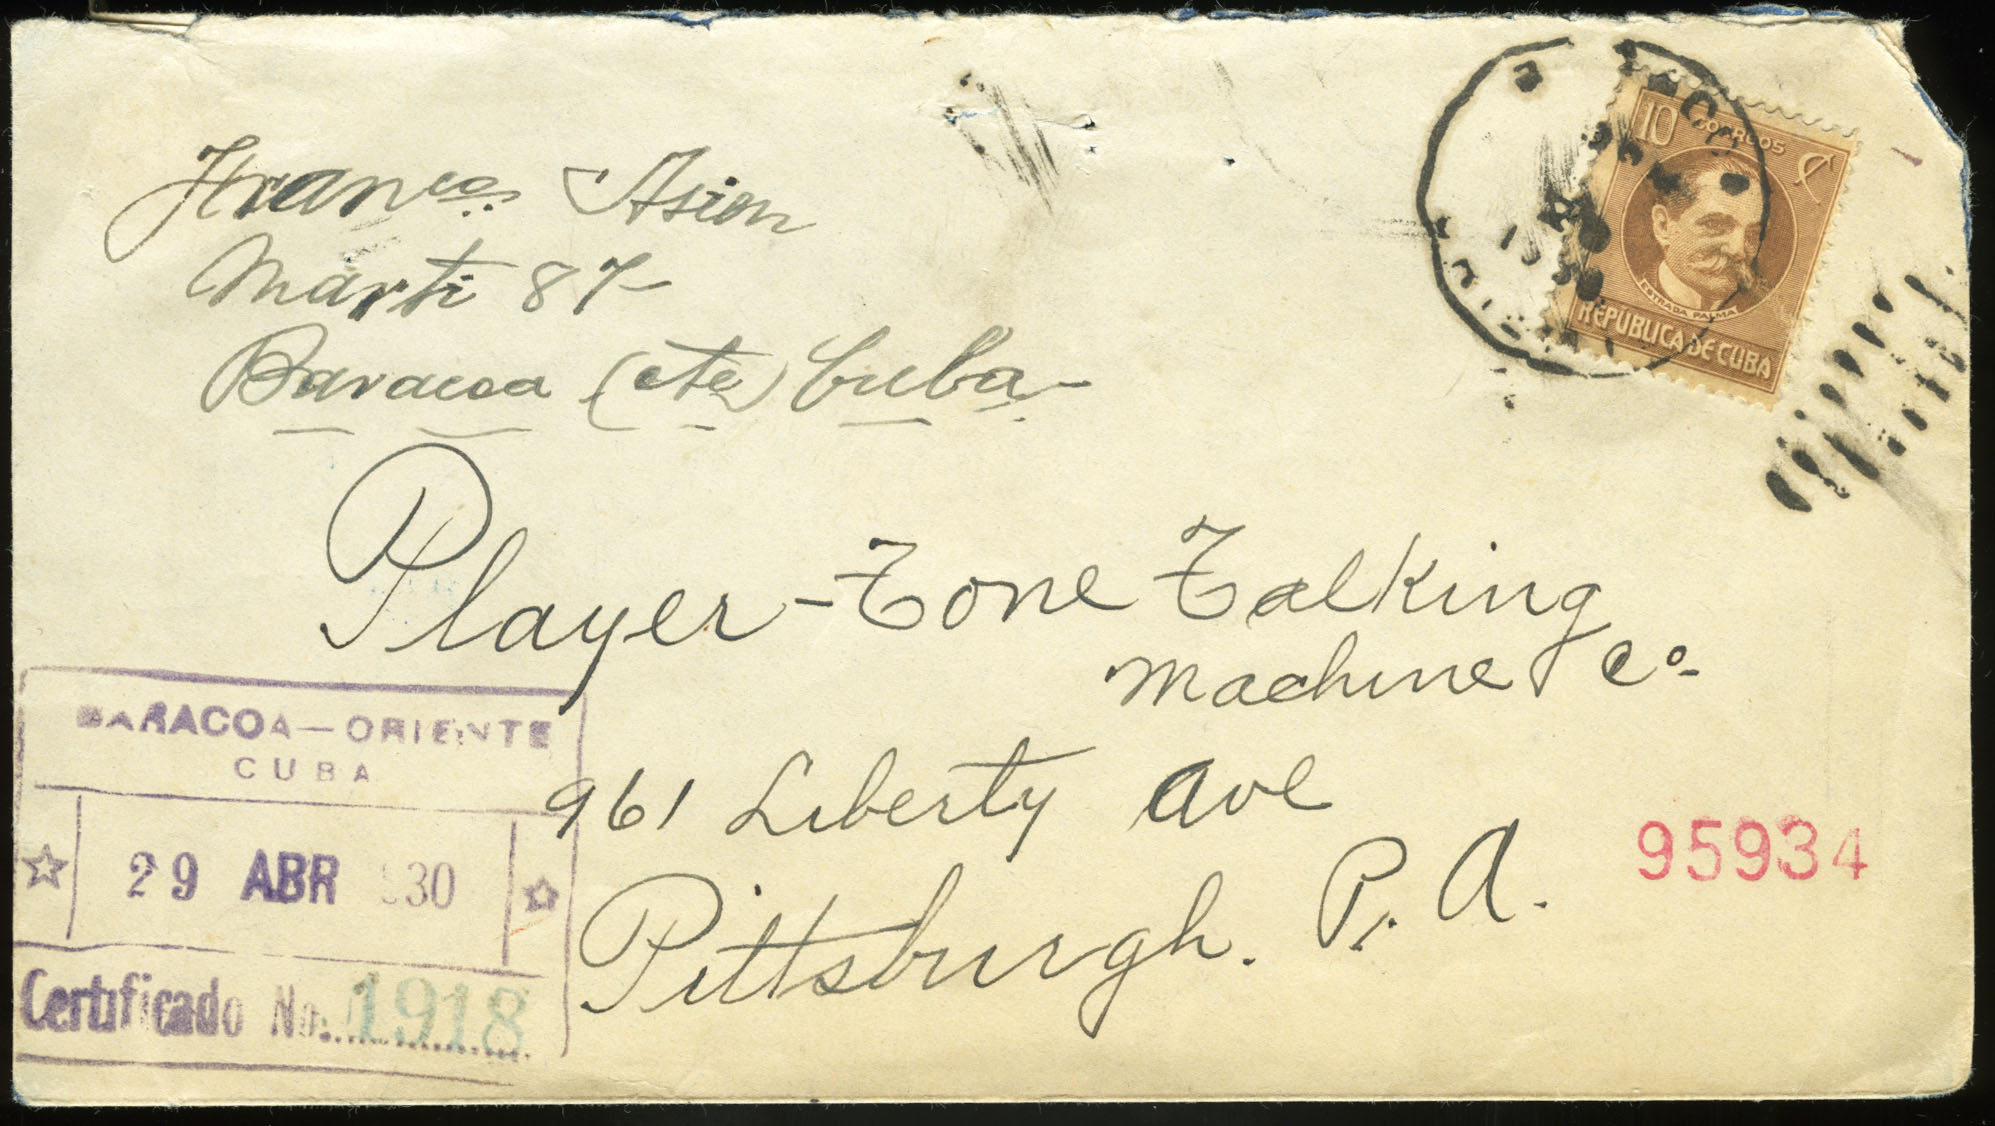 Franco. Asien
Marti 87-
Baracoa (Ote) Cuba-
10 CORREOS C
ESTRADA PALMA
REPUBLICA DE CUBA
1930
Player-Tone Talking
Machine Co-
961 Liberty Ave
Pittsburgh. P. A.
BARACOA—ORIENTE
CUBA
29 ABR 930
Certificado No. 1918
95934